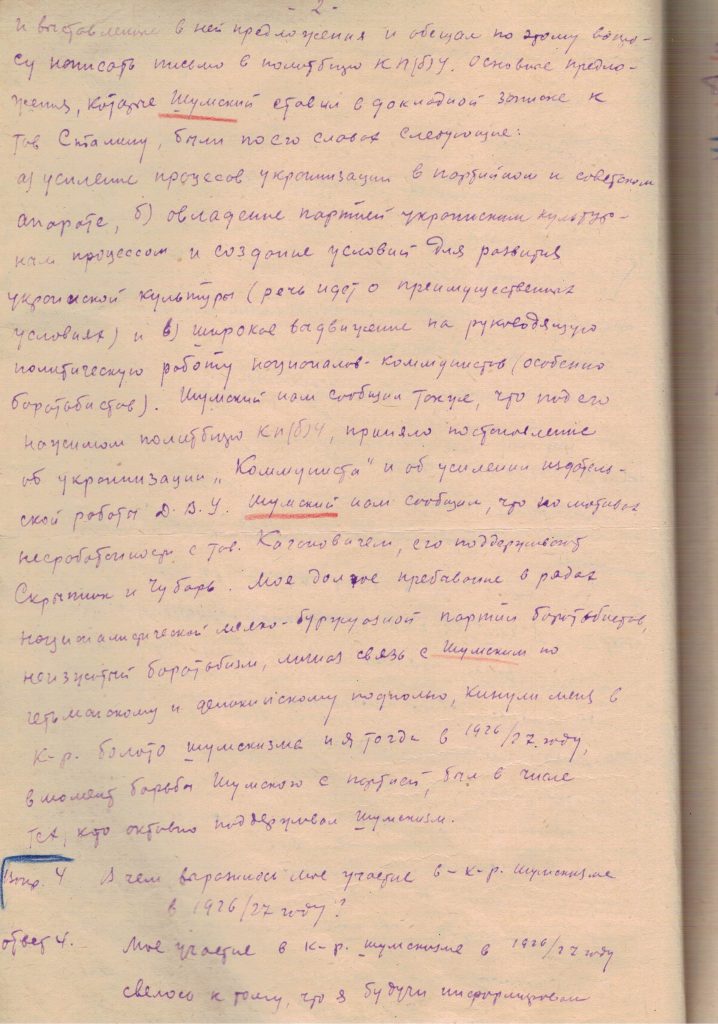 - 2 -
и выставленые в ней предложения и обещал по этому вопро-
су написать письмо в политбюро КП(б)У. Основные предло-
жения, которые Шумский ставил в докладной записке к
тов Сталину, были по его словах следующие:
а) усиление процессов украинизации в партийном и советском
апарате, б) овладение партией украинским культур-
ным процессом и создание условий для развития
украинской культуры (речь идет о преимущественных
условиях) и в) широкое выдвижение на руководящую
политическую работу националов-коммунистов (особенно
боротьбистов). Шумский нам сообщил также, что под его
нажимом политбюро КП(б)У, приняло постановление
об украинизации „Коммуниста" и об усилении издатель-
ской работы Д.В.У. Шумский нам сообщил, что по мотивах
несработанности с тов. Кагановичем, его поддерживают
Скрыпник и Чубарь. Мое долгое пребывание в рядах
националистической мелко-буржуазной партии боротьбистов,
неизжитый боротьбизм, личная связь с Шумским по
гетьманскому и деникинскому подполью, кинули меня в
к-р. болото шумскизма и я тогда в 1926/27 году,
в момент борьбы Шумского с партией, был в числе
тех, кто активно поддерживал шумскизм.
Вопр. 4 В чем выразилось мое участие в к-р. шумскизме
в 1926/27 году?
ответ 4. Мое участие в к-р. шумскизме в 1926/27 году
свелось к тому, что я будучи информирован